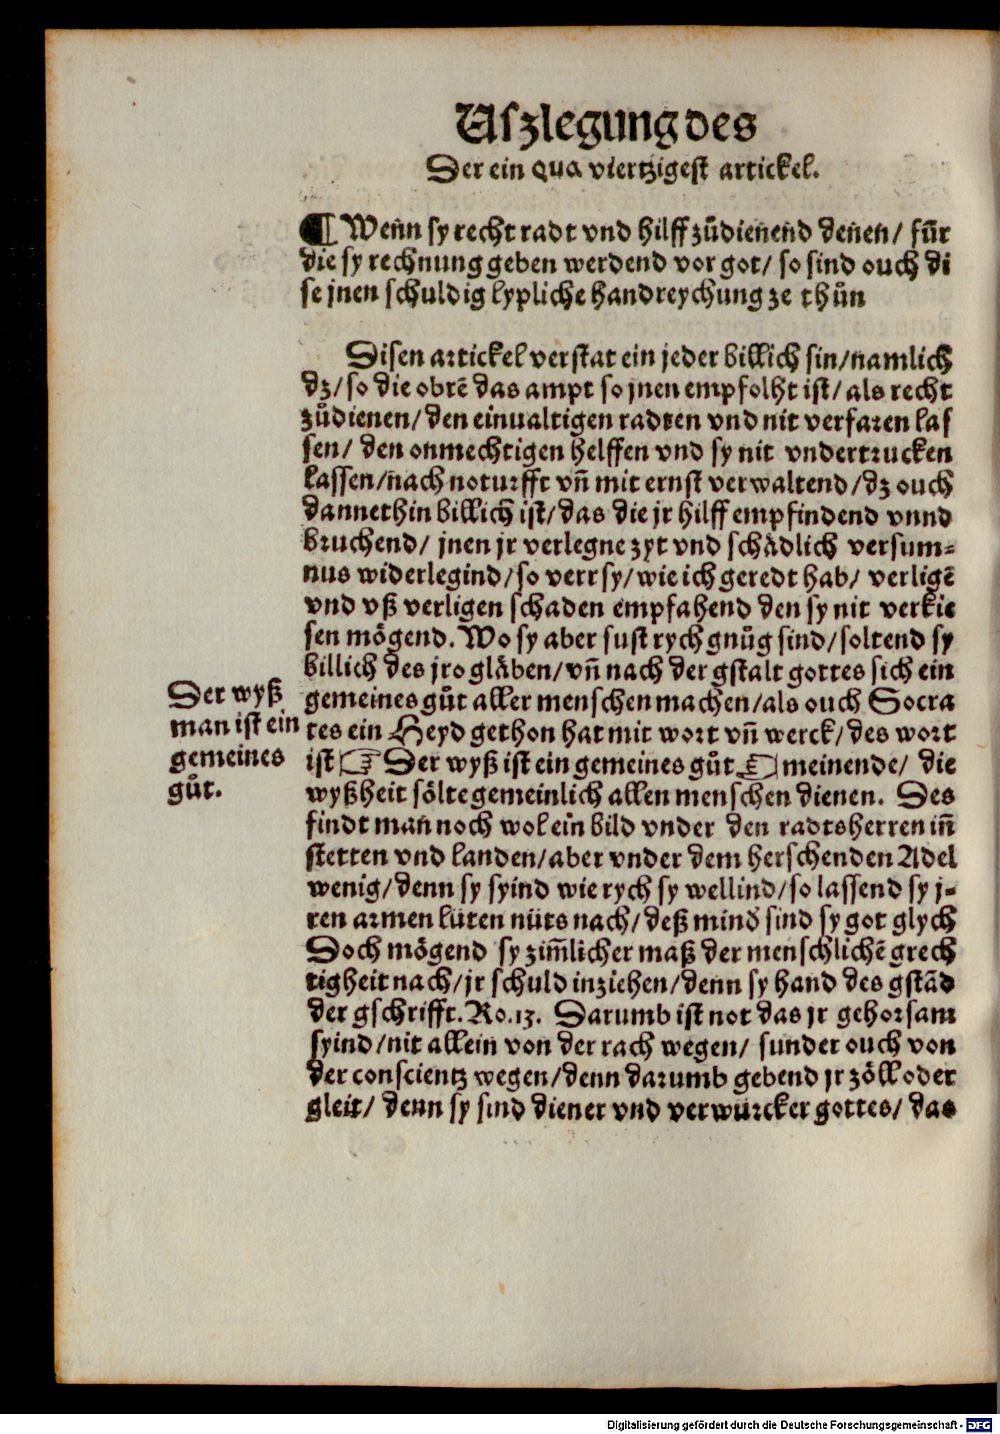 Uſzlegung des
Der ein qua viertzigeſt artickel.
¶ Wenn sy recht radt vnd hilff zůdienend denen/ für
die sy rechnung geben werdend vor got/ so sind ouch di
se jnen schuldig lypliche handreychung ze thůn
Disen artickel verstat ein jeder billich sin/namlich
dz/so die obrẽ das ampt so jnen empfolht ist/als recht
zůdienen/den einualtigen radten vnd nit verfaren las
sen/ den onmechtigen helffen vnd sy nit vndertrucken
lassen/nach noturfft vñ mit ernst verwaltend/dz ouch
dannethin billich ist/das die jr hilff empfindend vnnd
bruchend/ jnen jr verlegne zyt vnd schådlich versum-
nus widerlegind/so verr sy/wie ich geredt hab/ verligẽ
vnd vß verligen schaden empfahend den sy nit verkie
sen mögend. Wo sy aber sust rych gnůg sind/soltend sy
billich des jro glåben/vñ nach der gstalt gottes sich ein
gemeines gůt aller menschen machen/als ouch Socra
tes ein Heyd gethon hat mit wort vñ werck/des wort
ist ☞ Der wyß ist ein gemeines gůt ☜ meinende/ die
wyßheit sölte gemeinlich allen menschen dienen. Des
findt man noch wol ein bild vnder den radtsherren iñ
stetten vnd landen/aber vnder dem herschenden Adel
wenig/denn sy syind wie rych sy wellind/so lassend sy j-
ren armen lüten nüts nach/deß mind sind sy got glych
Doch mögend sy zim̃licher maß der menschlichẽ grech
tigheit nach/jr schuld inziehen/denn sy hand des gstãd
der gschrifft. Ro.13. Darumb ist not das jr gehorsam
syind/nit allein von der rach wegen/ sunder ouch von
der conscientz wegen/denn darumb gebend jr zöll oder
gleit/ denn sy sind diener vnd verwürcker gottes/ das
Der wyß
man ist ein
gemeines
gůt.
Digitalisierung gefördert durch die Deutsche Forschungsgemeinschaft - DFG